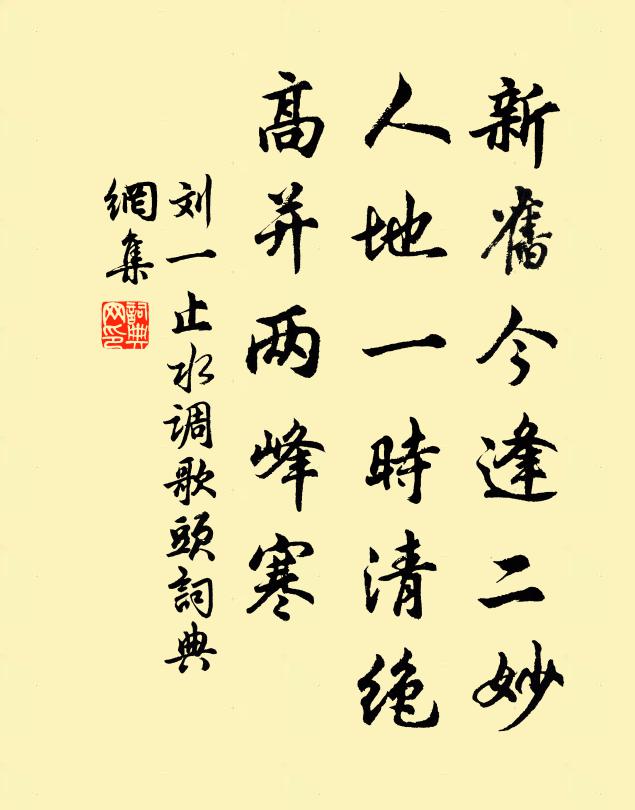 新舊今逢二妙
人地一時清绝
高并两峰寒
刘一止水调歌頭詞典
網集
詞典
网印